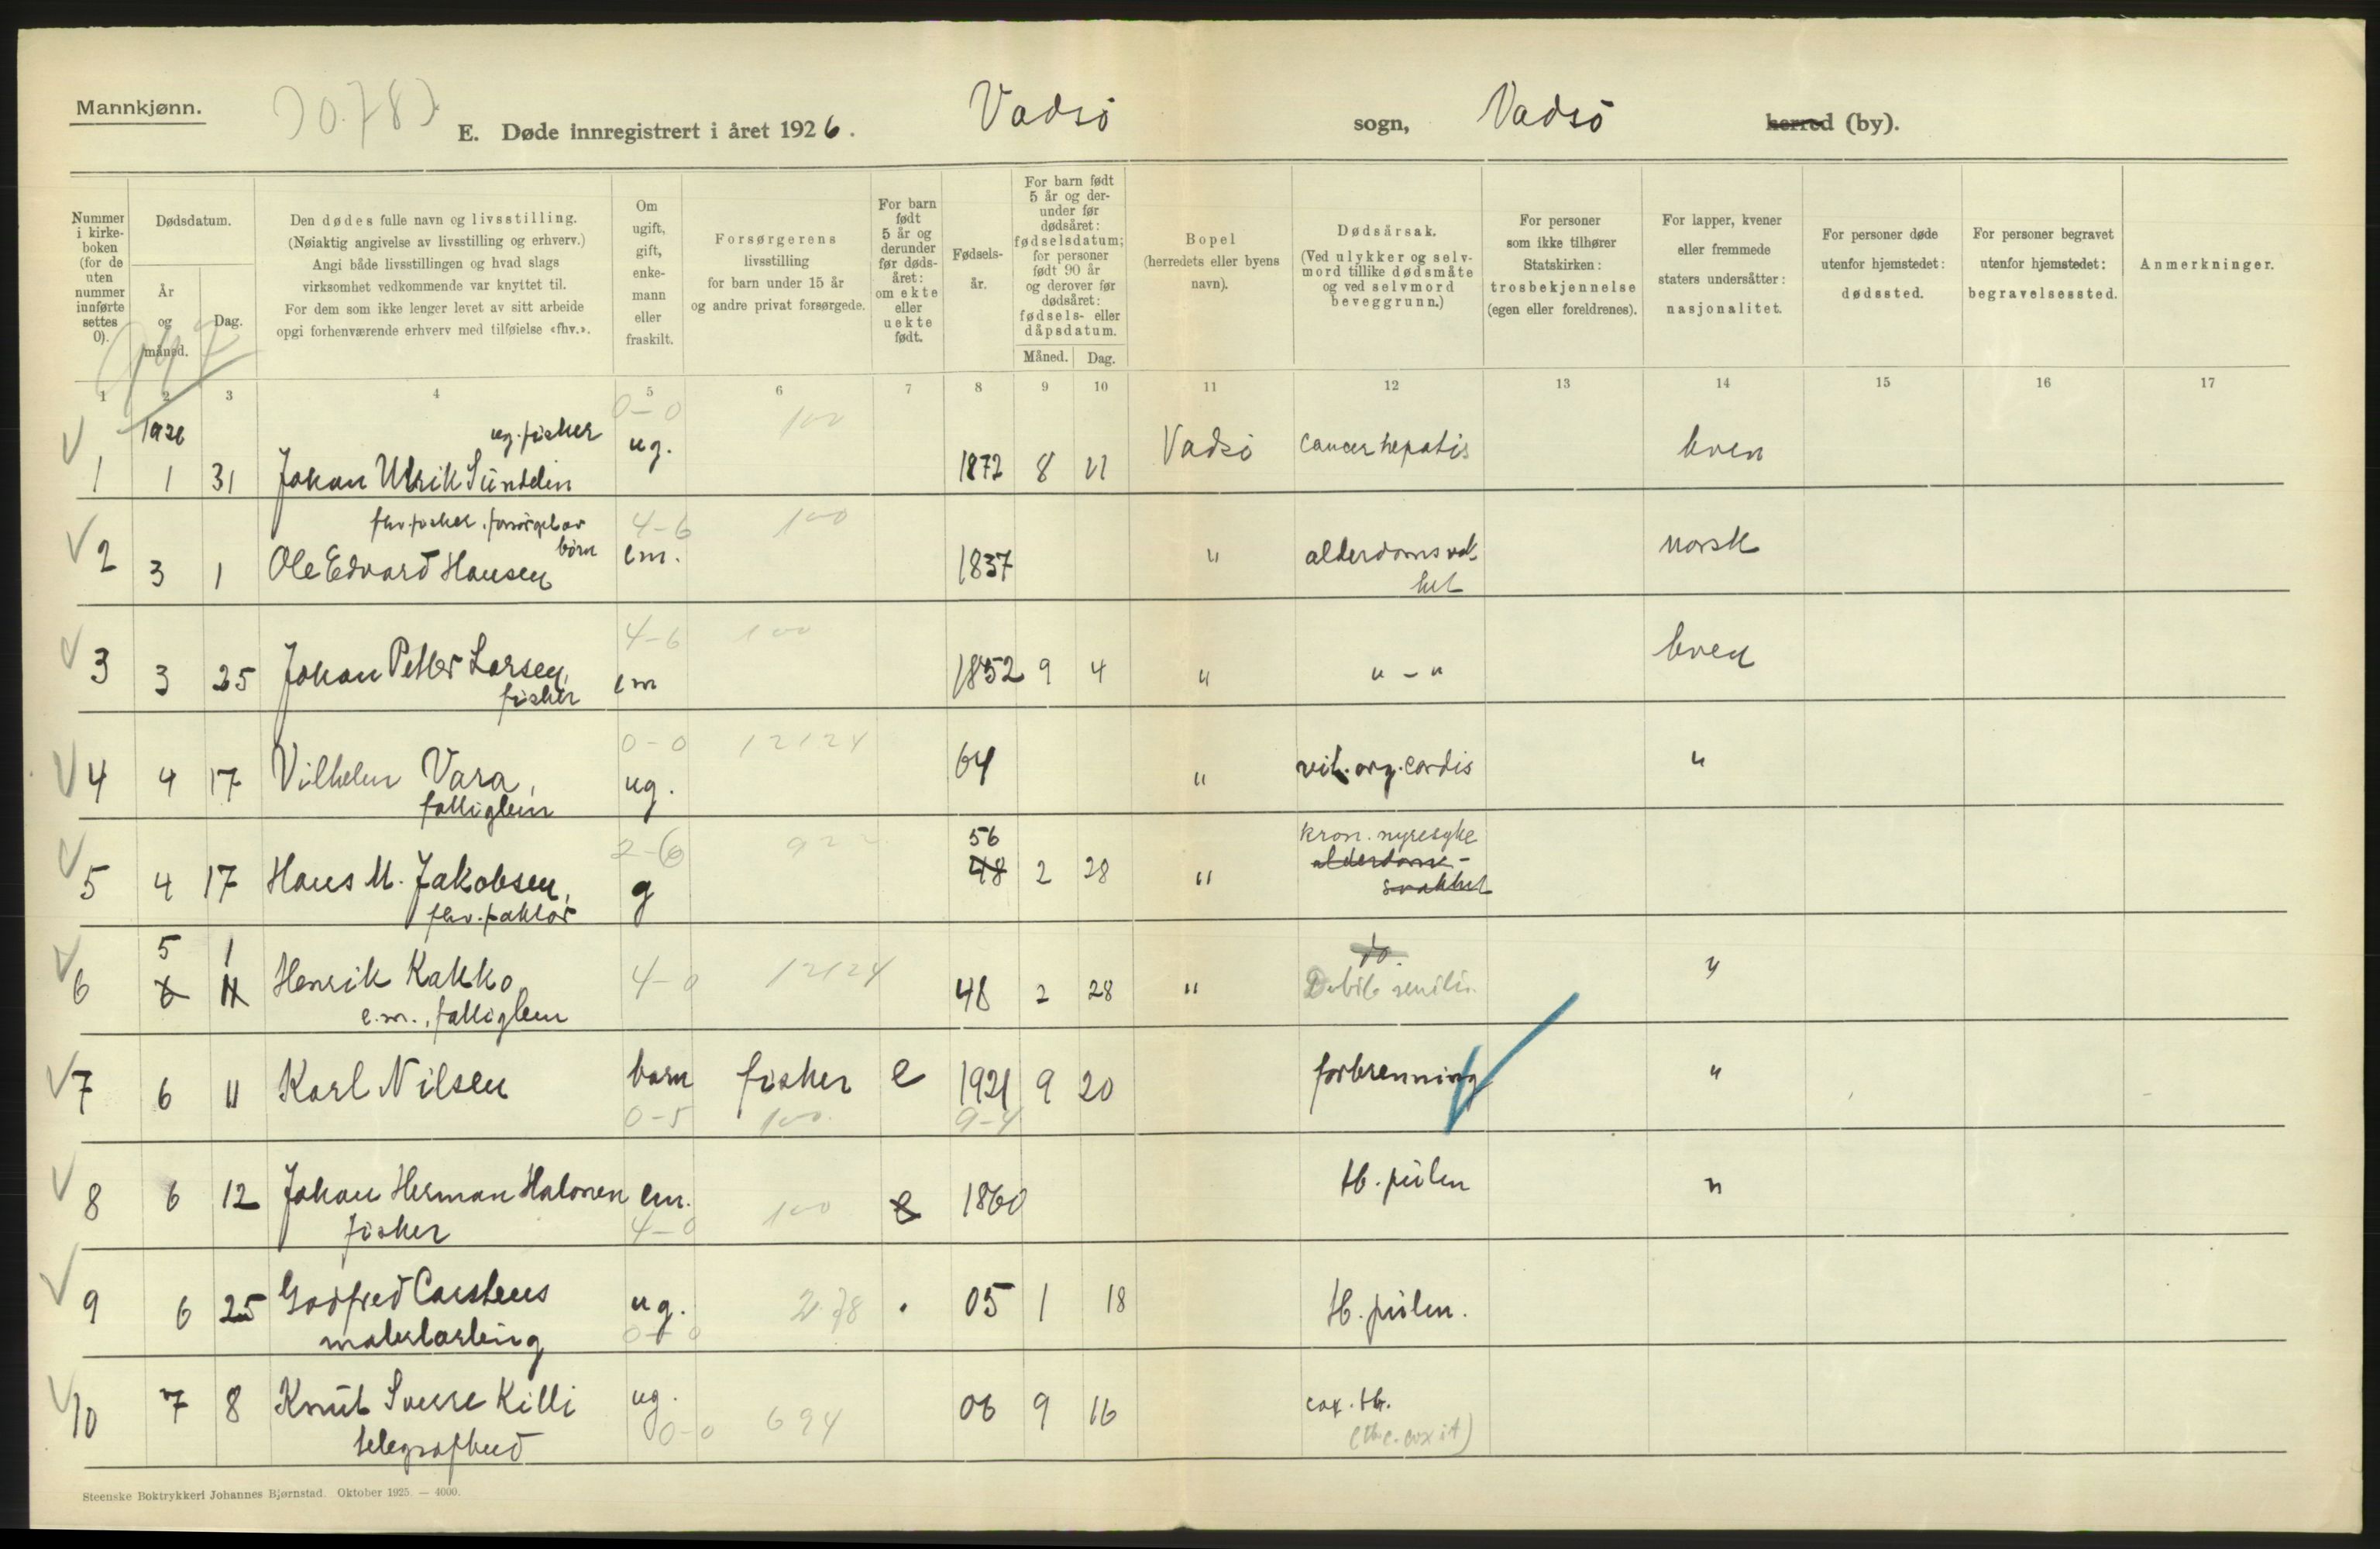 Mannkjønn.
E. Døde innregistrert i året 1926. Vadsö sogn, Vadsö herred (by).
Nummer i kirke- boken (for de uten nummer innførte settes 0).
Dødsdatum.
År og måned.
Dag.
Den dødes fulle navn og livsstilling.
(Nøiaktig angivelse av livsstilling og erhverv.)
Angi både livsstillingen og hvad slags
virksomhet vedkommende var knyttet til.
For dem som ikke lenger levet av sitt arbeide
opgi forhenværende erhverv med tilføielse «fhv.».
Om ugift, gift, enke- mann eller fraskilt.
Forsørgerens
livsstilling
for barn under 15 år
og andre privat forsørgede.
For barn født 5 år og derunder før døds- året: om ekte eller uekte født.
Fødsels- år.
For barn født 5 år og der- under før dødsåret: fødselsdatum; for personer født 90 år og derover før dødsåret: fødsels- eller dåpsdatum.
Måned. Dag.
Bopel
(herredets eller byens
navn).
Dødsårsak.
(Ved ulykker og selv-
mord tillike dødsmåte
og ved selvmord
beveggrunn.)
For personer
som ikke tilhører
Statskirken:
trosbekjennelse
(egen eller foreldrenes).
For lapper, kvener
eller fremmede
staters undersåtter:
nasjonalitet.
For personer døde
utenfor hjemstedet:
dødssted.
For personer begravet
utenfor hjemstedet:
begravelsessted.
Anmerkninger.
1 2 3 4 5 6 7 8 9 10 11 12 13 14 15 16 17
1926 ug. fisker 0-0 100
1 1 31 Johan Ulrik Sundelin ug. 1872 8 11 Vadsö cancer hepatis kven
fhv. fisker, forsörget av börn 4-6 100
2 3 1 Ole Edvard Hansen em. 1837 " alderdomsvak-
het norsk
4-6 100
3 3 25 Johan Petter Larsen, em 1852 9 4 " " - " kven
fisker
0-0 12124
4 4 17 Vilhelm Vara, ug. 64 " vit. org. cordis "
fattiglem
2-6 922 56 kron. nyresyke
5 4 17 Hans M. Jakobsen, g 48 2 28 " alderdoms-
fhv. faktor svakhet
5 1 do.
6 6 11 Henrik Kakko 4-0 12124 48 2 28 " Debil. senilis "
e.m., fattiglem
7 6 11 Karl Nilsen barn fisker e 1921 9 20 forbrenning "
0-5 100 9-4
8 6 12 Johan Herman Halonen em. 100 e 1860 tb. pulm "
fisker 4-0
9 6 25 Godfred Carstens ug. 278 05 1 18 tb. pulm.
malerlærling 0-0
10 7 8 Knut Sverre Killi ug. 06 9 16 cox. tb.
telegrafbud 0-0 694 (tb.c. coxit)
Steenske Boktrykkeri Johannes Bjørnstad. Oktober 1925. — 4000.